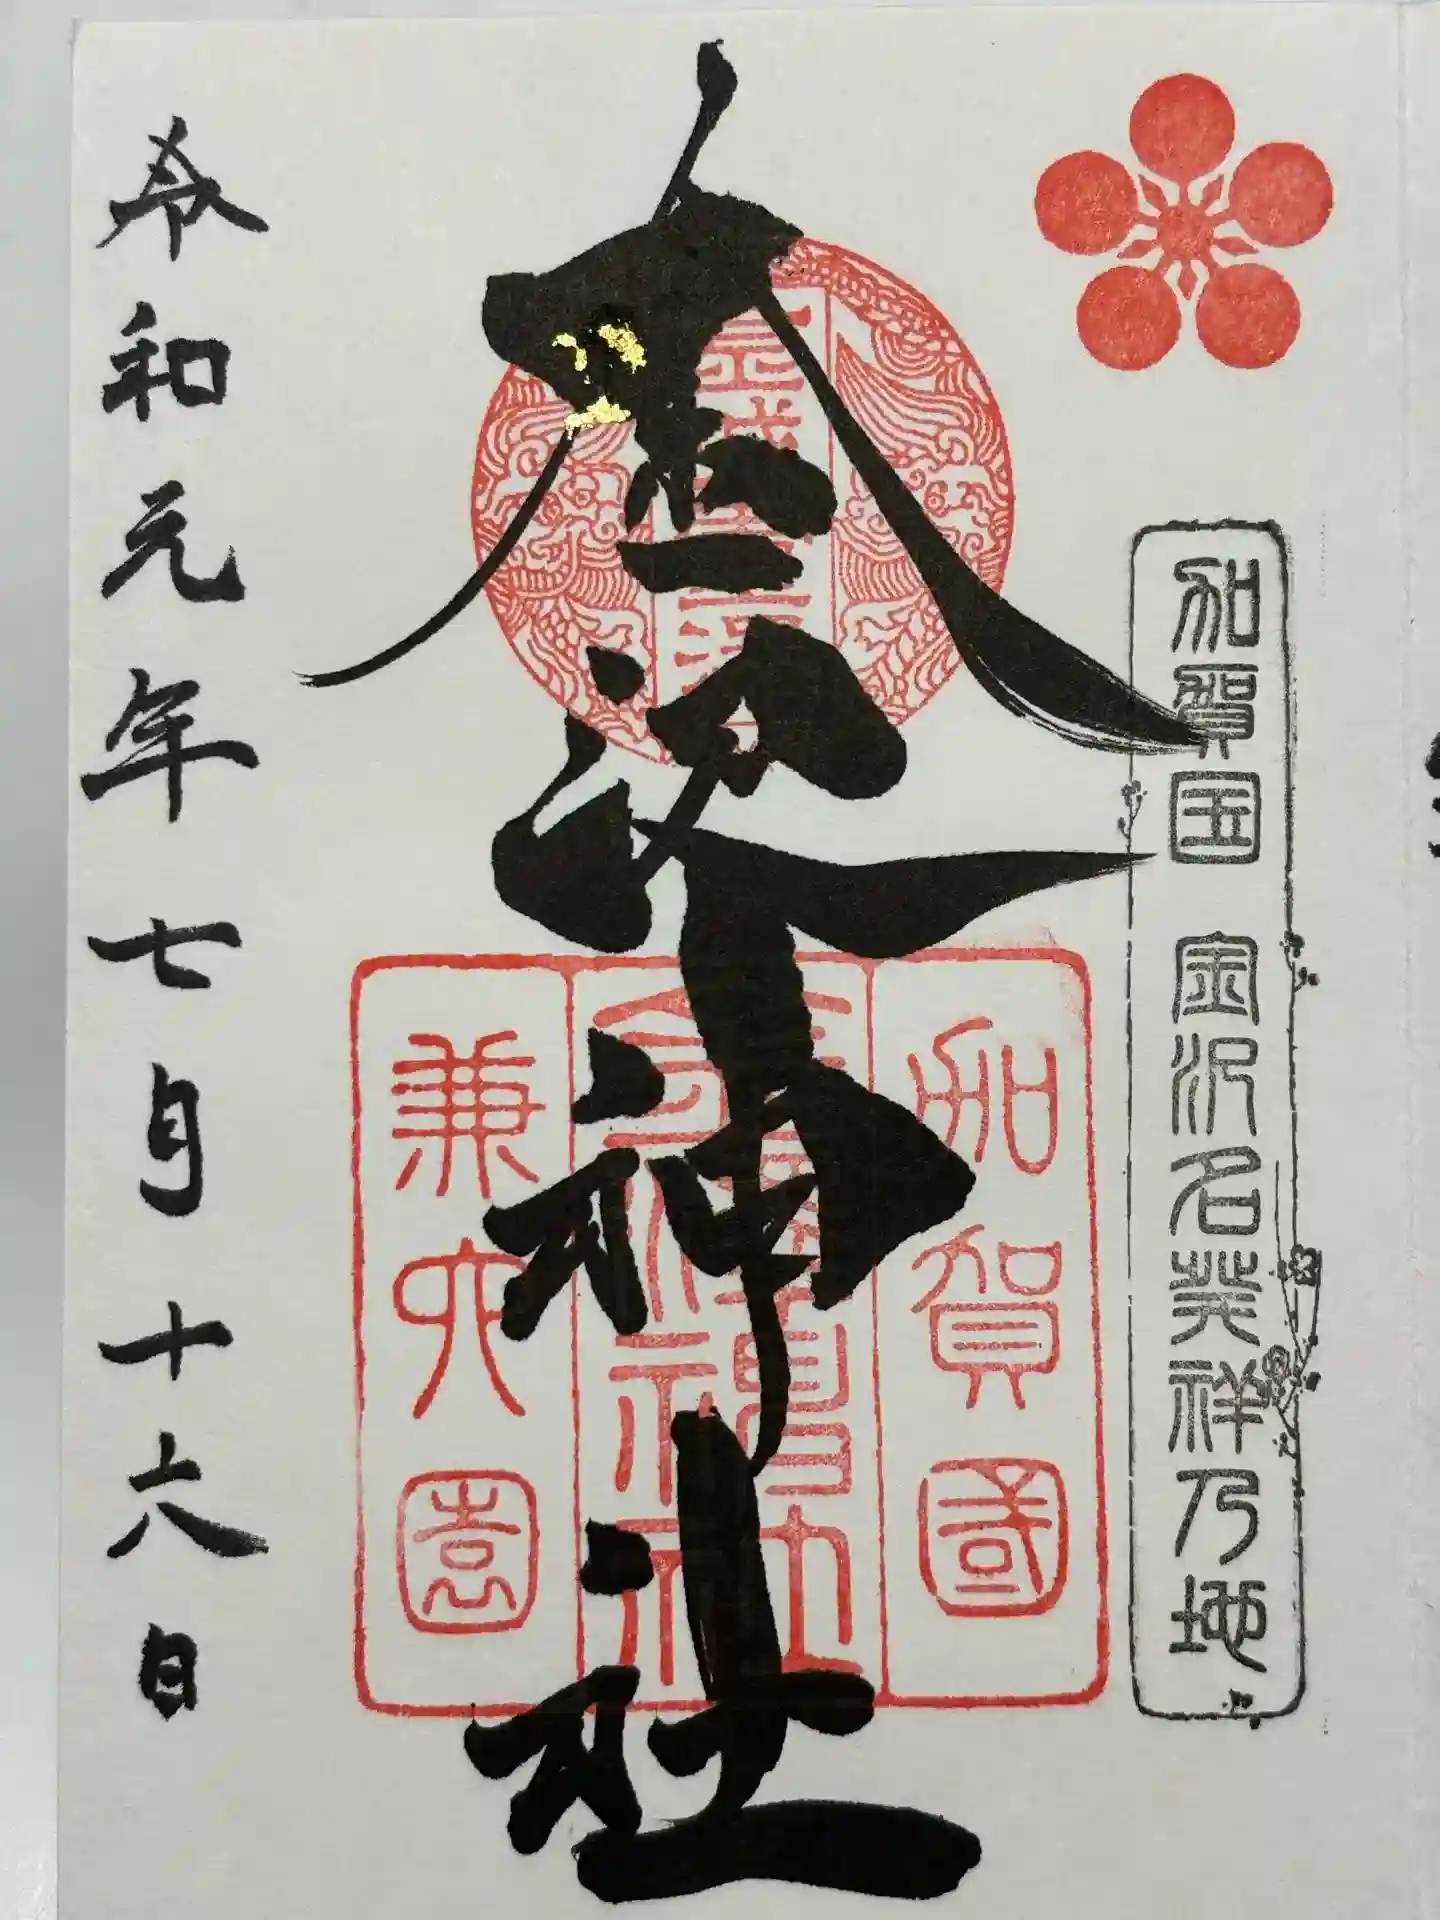 加賀国 金沢名発祥乃地
金沢神社
加賀國
兼六園
令和元年七月十六日